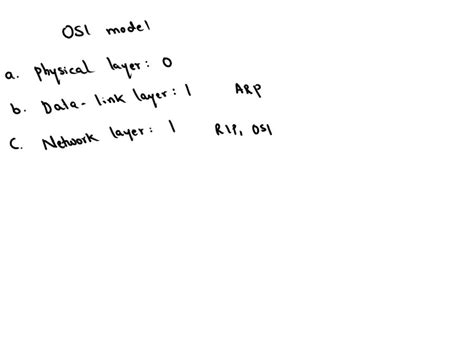 OSI model
a. Physical layer: 0
b. Data-link layer: 1 ARP
c. Network layer: 1 RIP, OSI